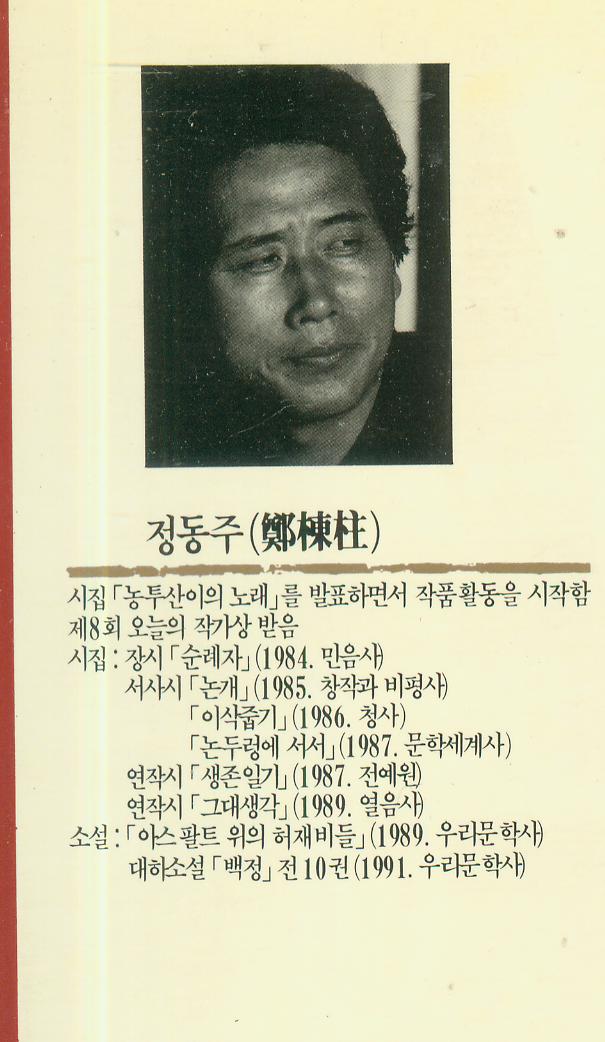 정동주(鄭棟柱)
시집「농투산이의 노래」를 발표하면서 작품활동을 시작함
제8회 오늘의 작가상 받음
시집: 장시「순례자」(1984. 민음사)
서사시「논개」(1985. 창작과 비평사)
「이삭줍기」(1986. 청사)
「논두렁에 서서」(1987. 문학세계사)
연작시「생존일기」(1987. 전예원)
연작시「그대생각」(1989. 열음사)
소설:「아스팔트 위의 허재비들」(1989. 우리문학사)
대하소설「백정」전10권(1991. 우리문학사)